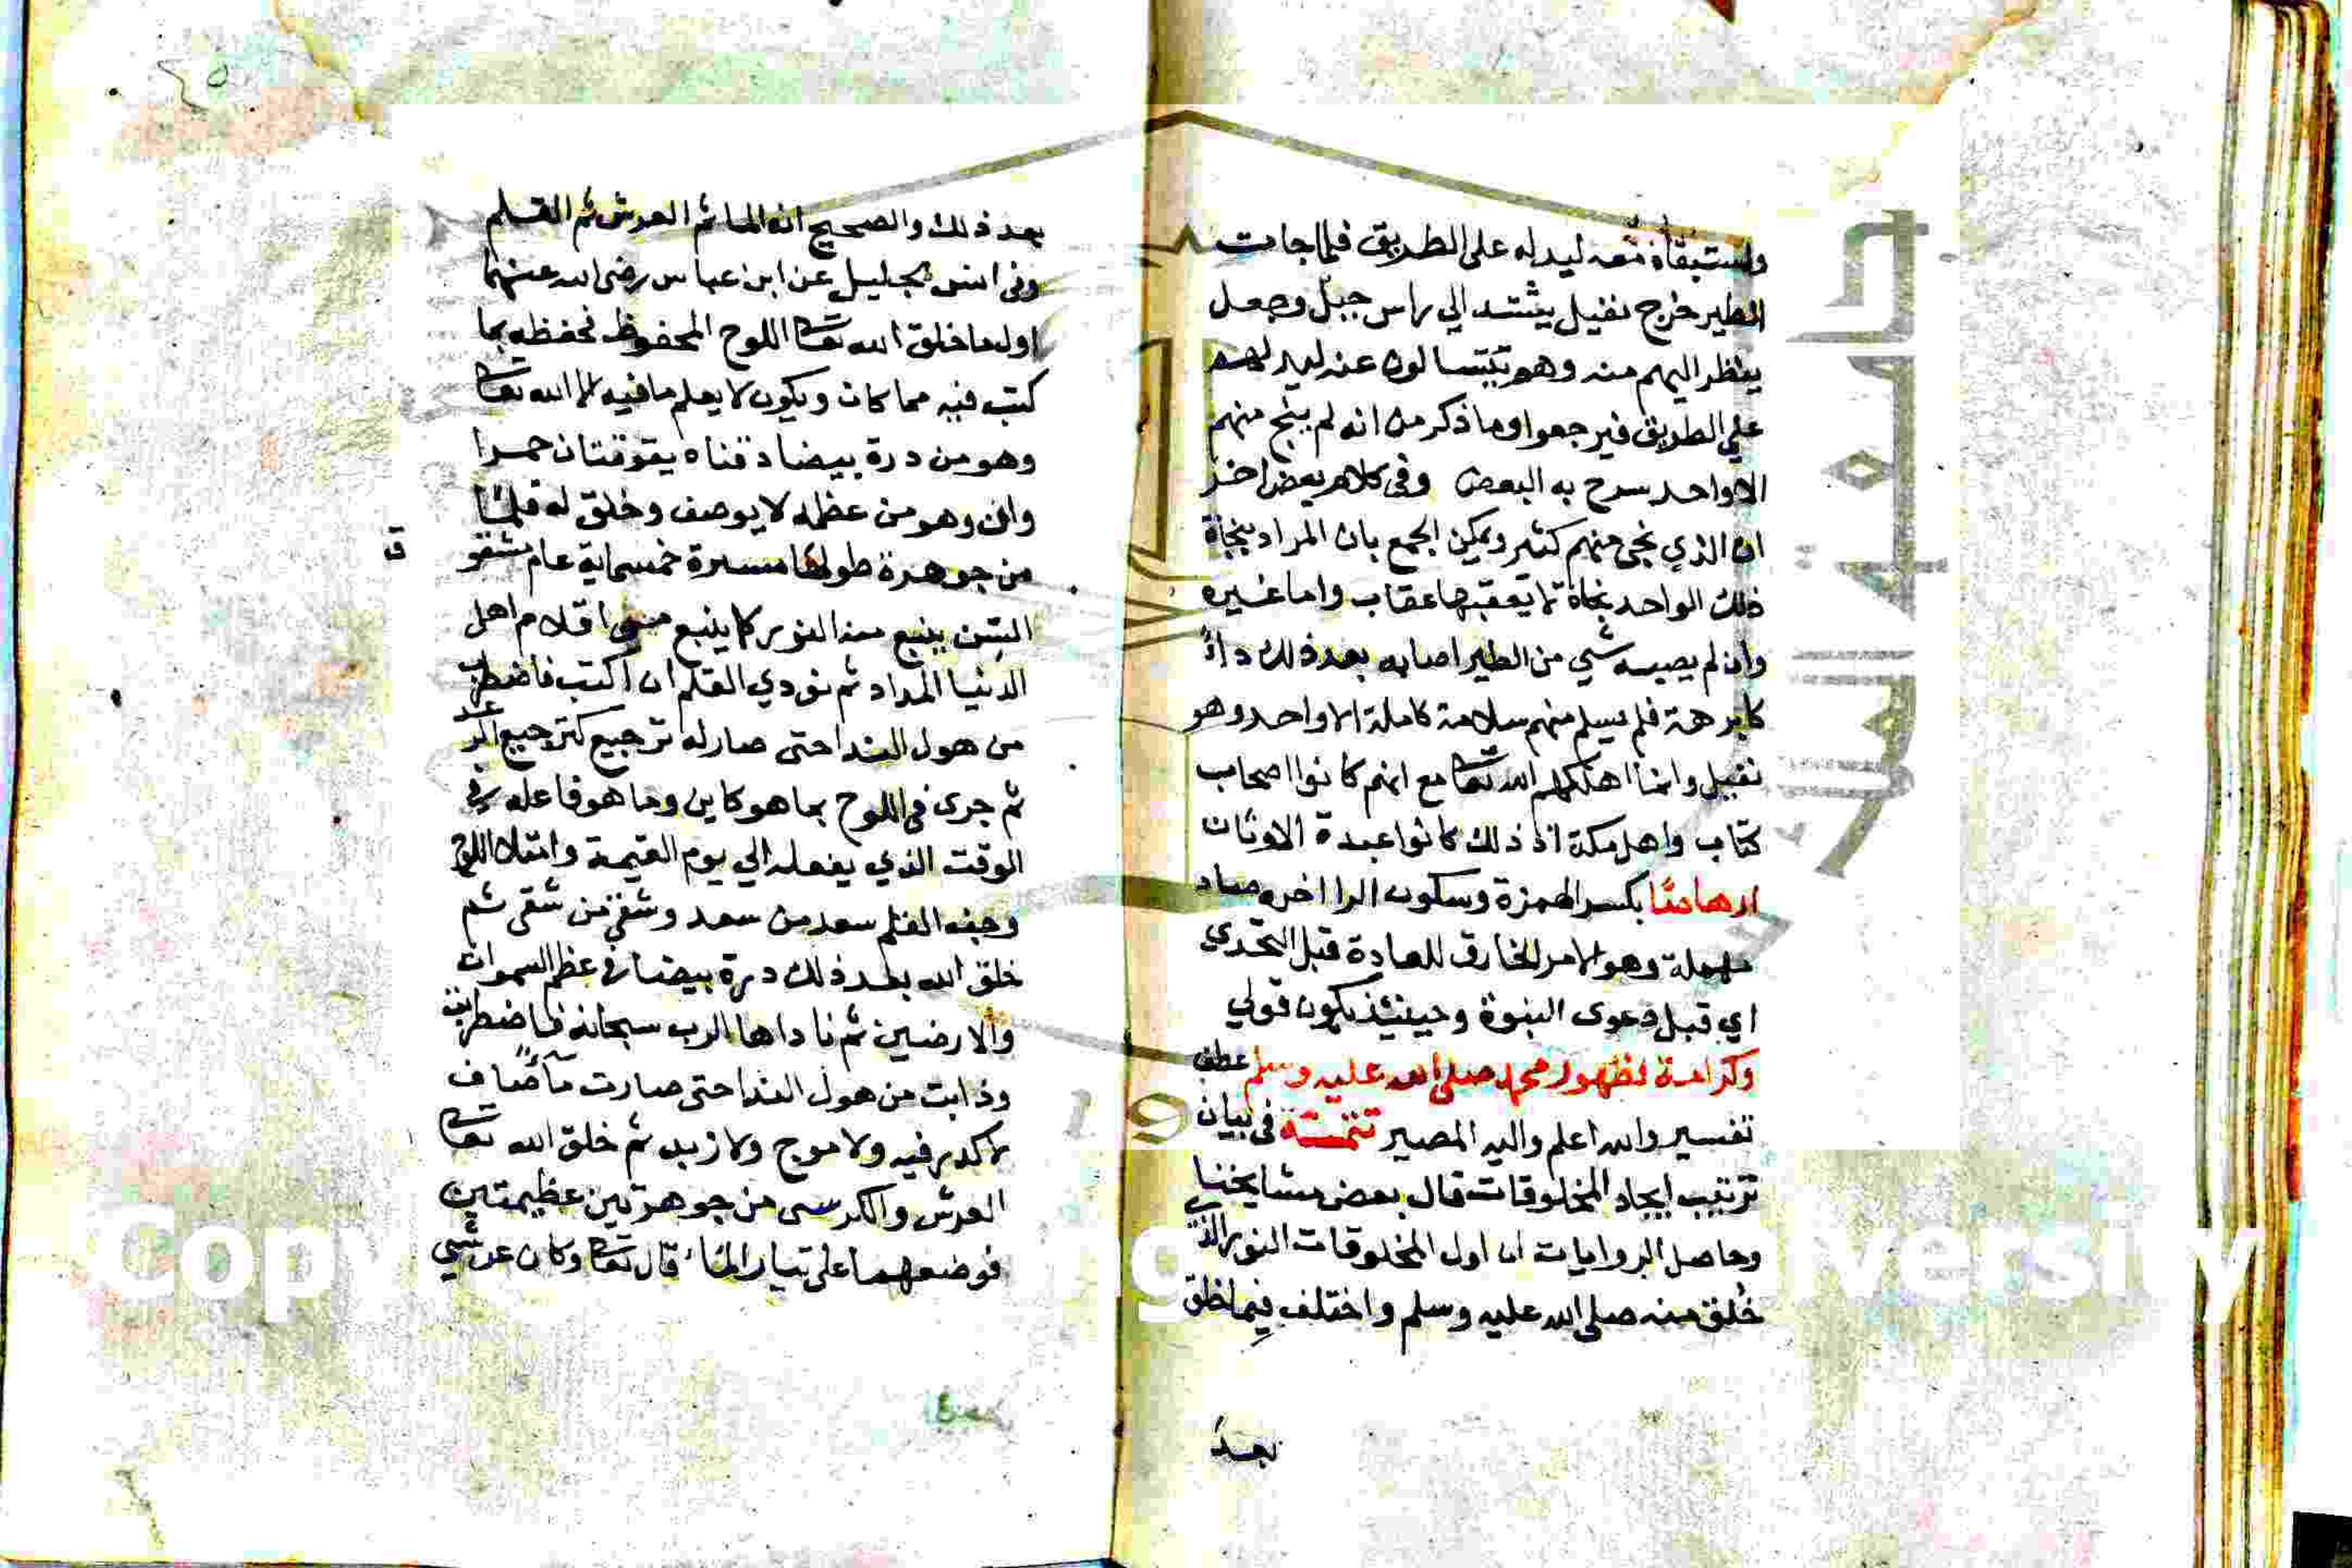 واستبقاه معه ليدله على الطريق فلما جات
الطير خرج نفيل يشتد الي راس جبل وجعل
ينظر اليهم منه وهم يتسالون عنه ليدلهم
علي الطريق فيرجعوا وما ذكر من انه لم ينج منهم
الا واحد سرح به البعض وفي كلام بعض اخر
ان الذي نجى منهم كثير ويمكن الجمع بان المراد بنجاة
ذلك الواحد نجاة لا يعقبها عقاب واما غيره
وان لم يصبه شي من الطير اصابه بعد ذلك داء
كابرهة فلم يسلم منهم سلامة كاملة الا واحد وهو
نفيل وانما اهلكهم الله تعا مع انهم كانوا اصحاب
كتاب واهل مكة اذ ذلك كانوا عبدة الاوثان
ارهاصًا بكسر الهمزة وسكون الرا اخره صاد
مهملة وهو الامر الخارق للعادة قبل التحدي
اي قبل دعوى النبوة وحينئذ يكون قولي
وكرامة لظهور محمد صلى الله عليه وسلم عطف
تفسير والله اعلم واليه المصير تتمة في بيان
ترتيب ايجاد المخلوقات قال بعض مشايخنا
وحاصل الروايات ان اول المخلوقات النور الذي
خُلق منه صلى الله عليه وسلم واختلف فيما خلق
بعد
٢٥
بعد ذلك والصحيح انه الما ثم العرش ثم القلم
وفي انس الجليل عن ابن عباس رضى الله عنهما
اول ما خلق الله تعا اللوح المحفوظ فحفظه بما
كتب فيه مما كان ويكون لا يعلم ما فيه الا الله تعا
وهو من درة بيضا دفتاه ياقوتتان حمرا
وان وهو من عظمه لا يوصف وخلق له قلمًا
من جوهرة طولها مسيرة خمسماية عام مشقو
ق
السن ينبع منه النور كما ينبع من اقلام اهل
الدنيا المداد ثم نودي القلم ان اكتب فاضطرب
من هول الندا حتى صار له ترجيع كترجيع الرعد
ثم جرى في اللوح بما هو كاين وما هو فاعله في
الوقت الذي يفعله الي يوم القيمة وامتلا اللوح
وجف القلم سعد من سعد وشقي من شقى ثم
خلق الله بعد ذلك درة بيضا في عظم السموات
والارضين ثم ناداها الرب سبحانه فاضطربت
وذابت من هول الندا حتى صارت ماءً صاف
لا كدر فيه ولا موج ولا زبد ثم خلق الله تعا
العرش والكرسى من جوهرتين عظيمتين
فوضعهما على تيار الماء قال تعا وكان عرشي